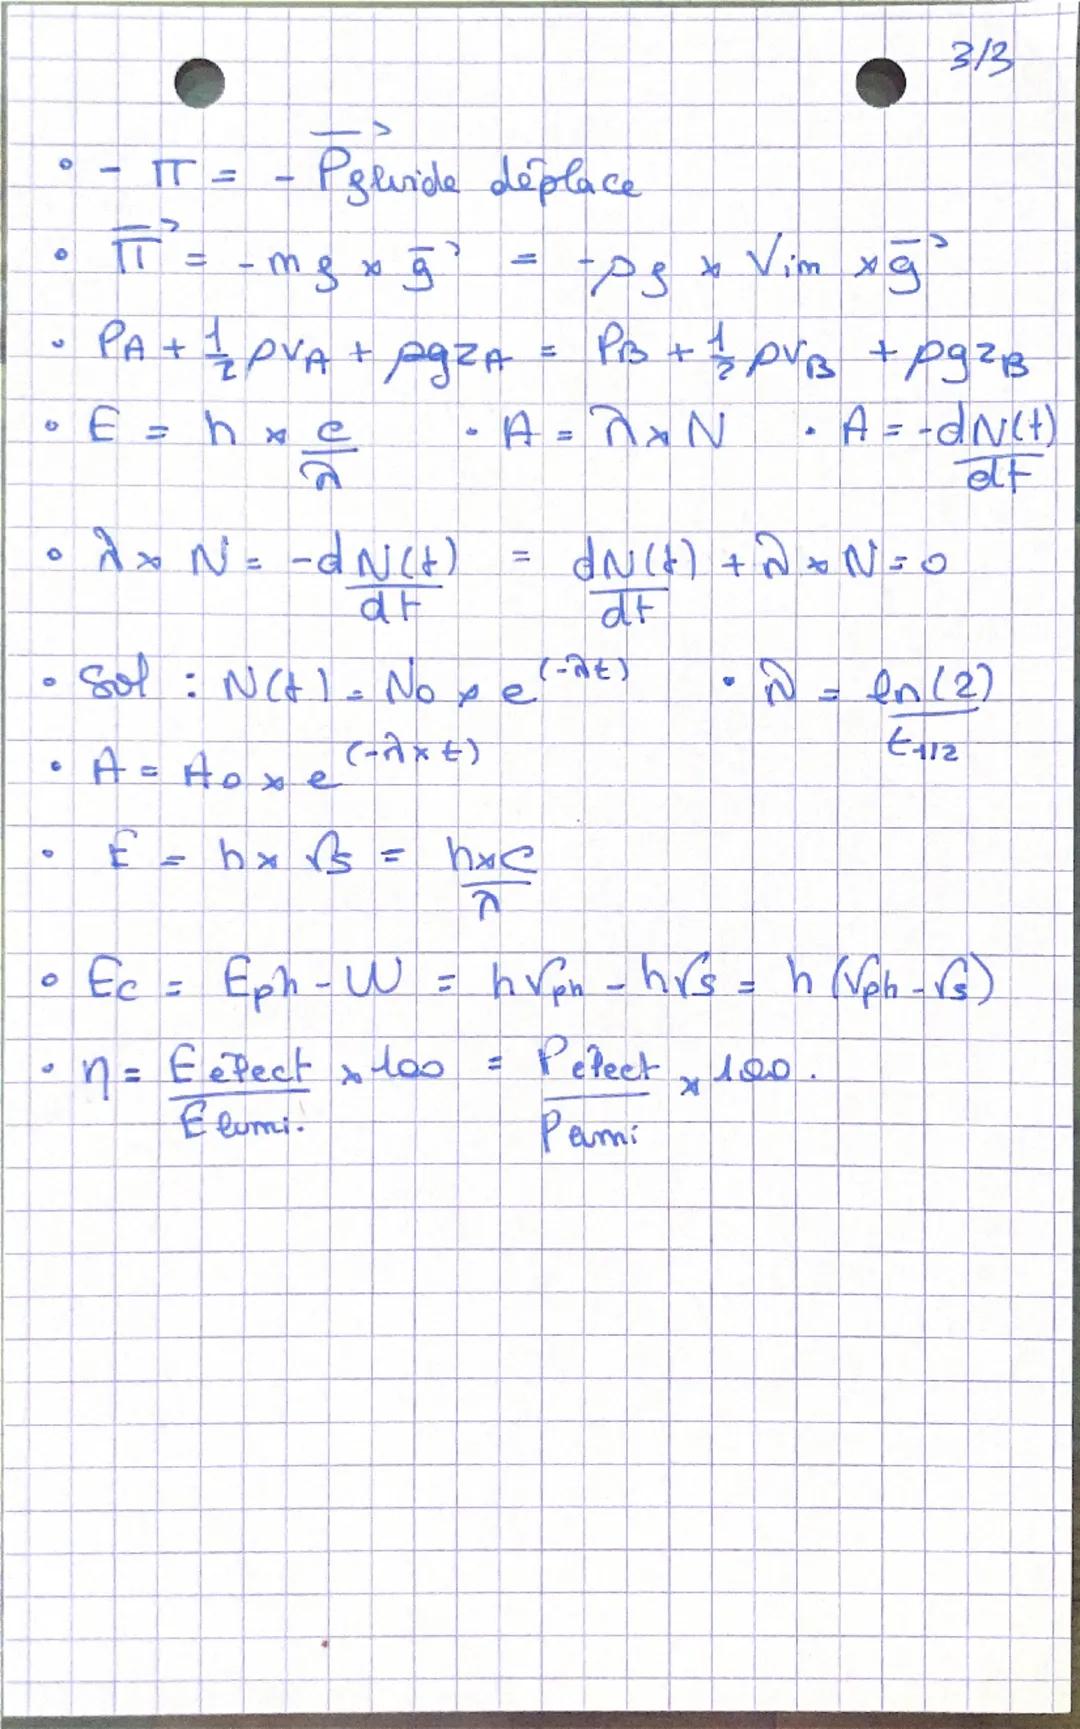 3/3
• - π = - P⃗fluide déplace
• π⃗ = - mf × g⃗ = - ρf × Vim × g⃗
• PA + 1/2 ρvA + ρgzA = PB + 1/2 ρvB + ρgzB
• E = h × c/λ • A = λ × N • A = -dN(t)/dt
• λ × N = -dN(t)/dt = dN(t)/dt + λ × N = 0
• Sol : N(t) = No × e^(-λt) • λ = ln(2)/t1/2
• A = Ao × e^(-λ×t)
• E = h × νs = h×c/λ
• Ec = Eph - W = hνph - hνs = h (νph - νs)
• η = Eélect/Elumi. × 100 = Pélect/Plumi × 100.